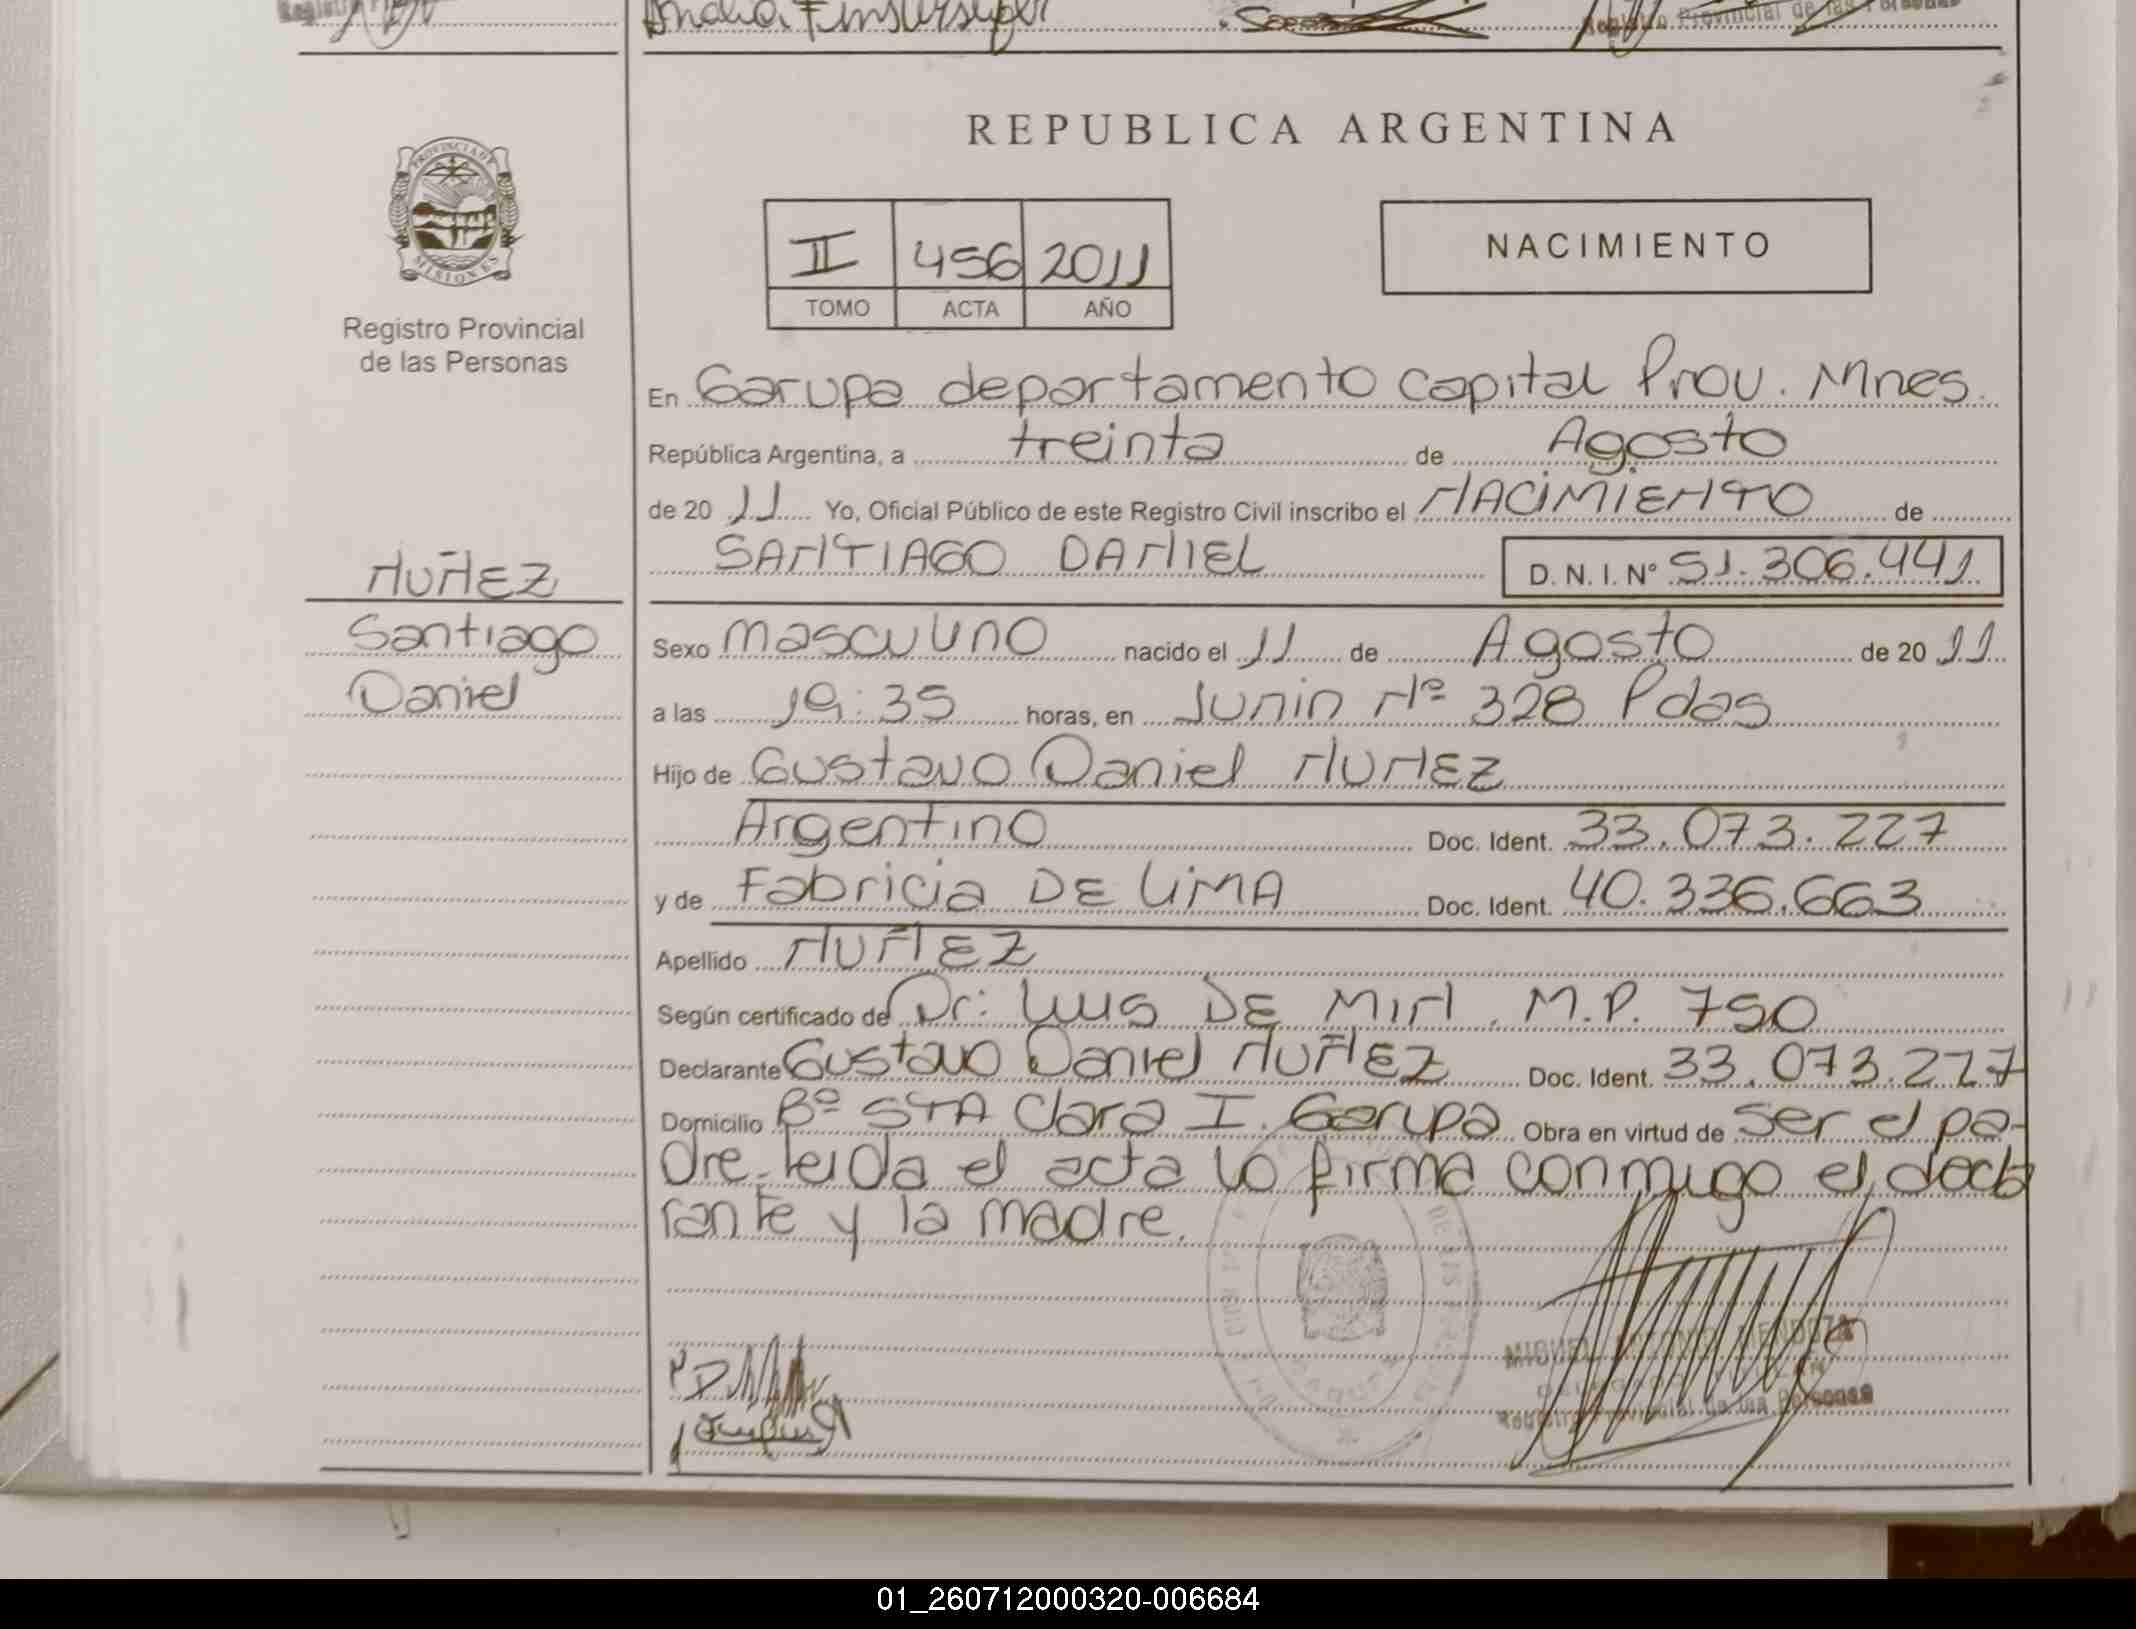 REPUBLICA ARGENTINA
PROVINCIA DE
MISIONES
Registro Provincial
de las Personas
II 456 2011
TOMO ACTA AÑO
NACIMIENTO
En Garupa departamento Capital Prov. Mnes.
República Argentina, a treinta de Agosto
de 20 11 Yo, Oficial Público de este Registro Civil inscribo el NACIMIENTO de
SANTIAGO DANIEL D. N. I. N° 51.306.441
NUÑEZ
Santiago
Daniel
Sexo Masculino nacido el 11 de Agosto de 20 11
a las 19:35 horas, en Junin Nº 328 Pdas
Hijo de Gustavo Daniel NUÑEZ
Argentino Doc. Ident. 33.073.227
y de Fabricia DE LIMA Doc. Ident. 40.336.663
Apellido NUÑEZ
Según certificado de Dr: Luis DE MIN. M.P. 750
Declarante Gustavo Daniel NUÑEZ Doc. Ident. 33.073.227
Domicilio Bº STA Clara I. Garupa Obra en virtud de ser el pa-
dre. leida el acta lo firma conmigo el decla
rante y la madre.
MIGUEL ANTONIO MENDOZA
Registro Provincial de las Personas
01_260712000320-006684